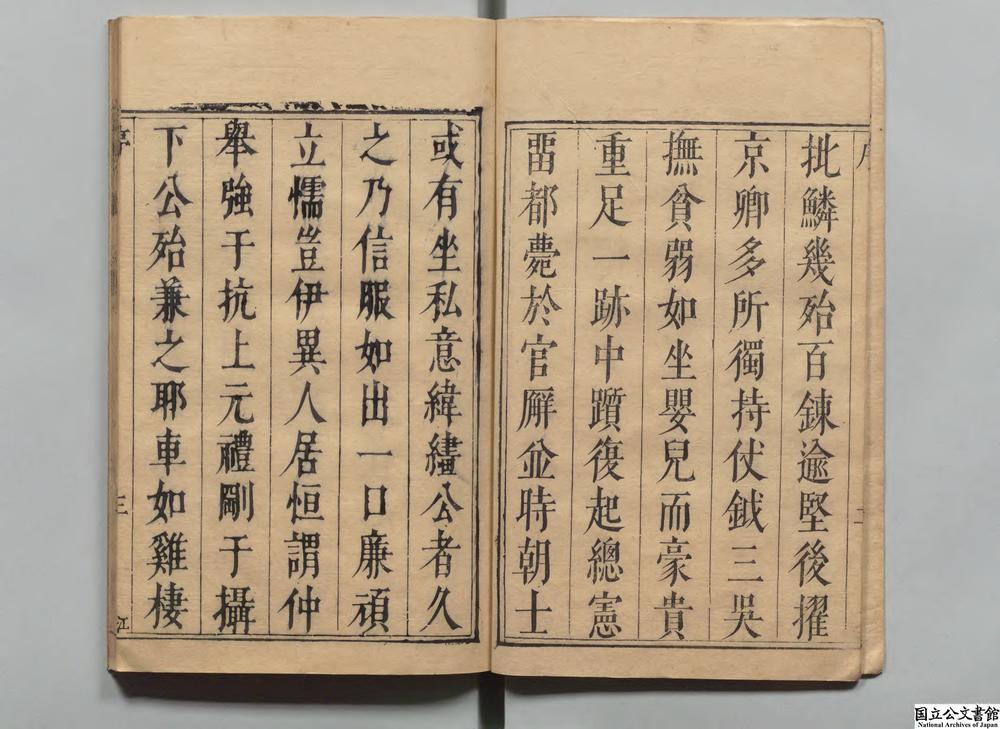 批鱗幾殆百鍊逾堅後擢
京卿多所獨持仗鉞三吳
撫貧弱如坐嬰兒而豪貴
重足一跡中躓復起總憲
畱都薨於官廨並時朝士
或有坐私意緯繣公者久
之乃信服如出一口廉頑
立懦豈伊異人居恒謂仲
舉強于抗上元禮剛于攝
下公殆兼之耶車如雞棲
三
国立公文書館
National Archives of Japan